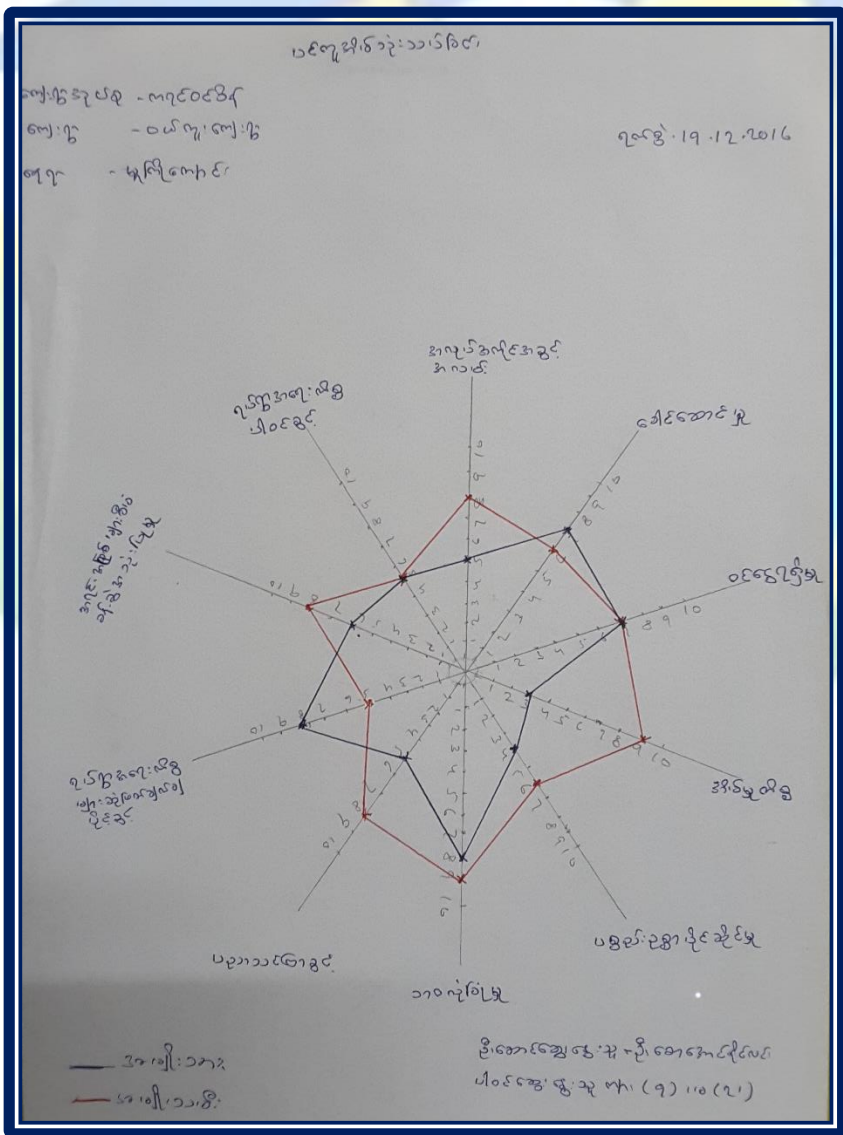 ပင့်ကူအိမ်သုံးသပ်ခြင်း
ကျေးရွာအုပ်စု - ကရင်ဝင်စိန်
ကျေးရွာ - ဝယ်ကူးကျေးရွာ
နေရာ - မူကြိုကျောင်း
ရက်စွဲ - 19.12.2016
အလုပ်အကိုင်အခွင့်
အလမ်း
ခေါင်းဆောင်မှု
ဝင်ငွေရရှိမှု
အိမ်မှုကိစ္စ
ပစ္စည်းဥစ္စာပိုင်ဆိုင်မှု
ဘဝလုံခြုံမှု
ပညာသင်ကြားခွင့်
ရပ်ရွာအရေးကိစ္စ
များဆုံးဖြတ်ချက်ချ
ပိုင်ခွင့်
အရင်းအမြစ်များစီမံ
ခန့်ခွဲအသုံးပြုမှု
ရပ်ရွာအရေးကိစ္စ
ပါဝင်ခွင့်
1 2 3 4 5 6 7 8 9 10
အမျိုးသား
အမျိုးသမီး
ဦးဆောင်ဆွေးနွေးသူ - ဦးစောအောင်နိုင်လင်း
ပါဝင်ဆွေးနွေးသူ ကျား (၅) မ (၇)